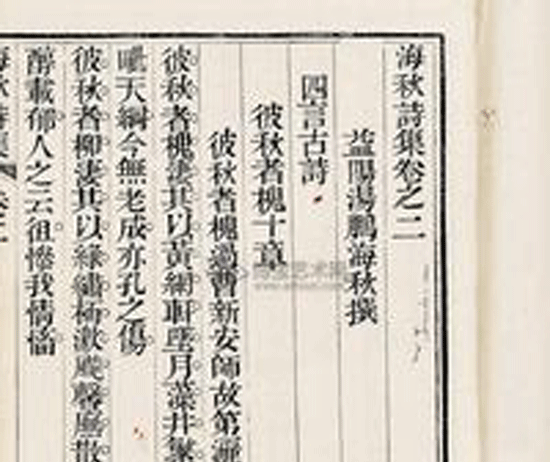 海秋詩集卷之二
益陽湯鵬海秋撰
四言古詩
彼秋者槐十章
彼秋者槐過曹新安師故第
彼秋者槐淒其以黃網軒墜月藻井
天網今無老成亦孔之傷
彼秋者柳淒其以綠繡極激
醉載郁人之云徂慘我情